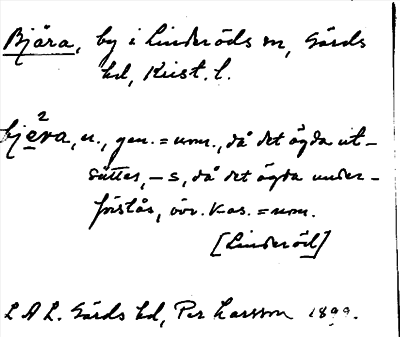 Bjära, by i Linderöds sn, Gärds
hd, Krist. l.
bjèra, n., gen. = nom., då det ägda ut-
sättes, -s, då det ägda under-
förstås, övr. kas. = nom.
[Linderöd]
L A L. Gärds hd, Per Larsson 1899.